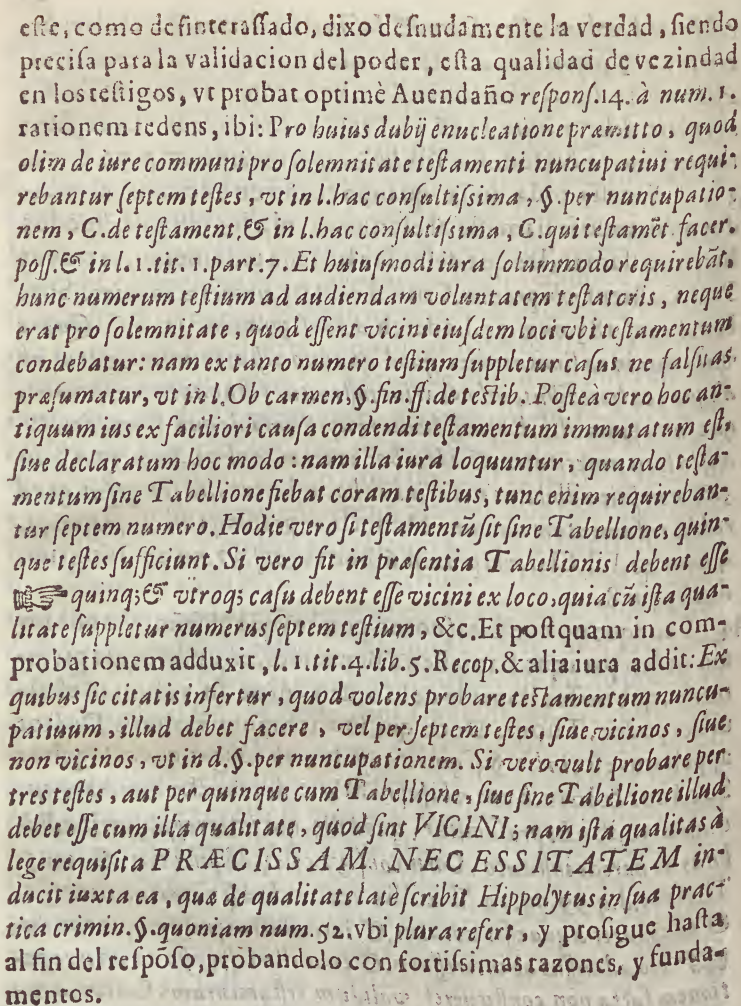 este, como desinterassado, dixo desnudamente la verdad, siendo
precisa para la validacion del poder, esta qualidad de vezindad
en los testigos, vt probat optimè Auendaño respons.14. à num. 1.
rationem redens, ibi: Pro huius dubij enucleatione præmitto, quod
olim de iure communi pro solemnitate testamenti nuncupatiui requi-
rebantur septem testes, vt in l.hac consultissima, §. per nuncupatio-
nem, C.de testament.& in l.hac consultissima, C.qui testamẽt. facer.
poss.& in l. 1.tit. 1.part.7. Et huiusmodi iura solummodo requirebãt,
hunc numerum testium ad audiendam voluntatem testatoris, neque
erat pro solemnitate, quod essent vicini eiusdem loci vbi testamentum
condebatur: nam ex tanto numero testium suppletur casus ne falsitas
præsumatur, vt in l.Ob carmen, §. fin.ff.de testib. Posteà vero hoc an-
tiquum ius ex faciliori causa condendi testamentum immutatum est,
siue declaratum hoc modo: nam illa iura loquuntur, quando testa-
mentum sine Tabellione fiebat coram testibus, tunc enim requireban-
tur septem numero. Hodie vero si testamentũ sit sine Tabellione, quin-
que testes sufficiunt. Si vero fit in præsentia Tabellionis debent esse
☞ quinq;& vtroq; casu debent esse vicini ex loco, quia cũ ista qua-
litate suppletur numerus septem testium, &c. Et postquam in com-
probationem adduxit, l. 1.tit.4.lib.5. Recop.& alia iura addit: Ex
quibus sic citatis infertur, quod volens probare testamentum nuncu-
patiuum, illud debet facere, vel per septem testes, siue vicinos, siue
non vicinos, vt in d.§. per nuncupationem. Si vero vult probare per
tres testes, aut per quinque cum Tabellione, siue sine Tabellione illud
debet esse cum illa qualitate, quod sint VICINI; nam ista qualitas à
lege requisita PRÆCISSAM NECESSITATEM in-
ducit iuxta ea, quæ de qualitate latè scribit Hippolytus in sua prac-
tica crimin.§.quoniam num.52.vbi plura refert, y prosigue hasta
al fin del respõso, probandolo con fortissimas razones, y funda-
mentos.